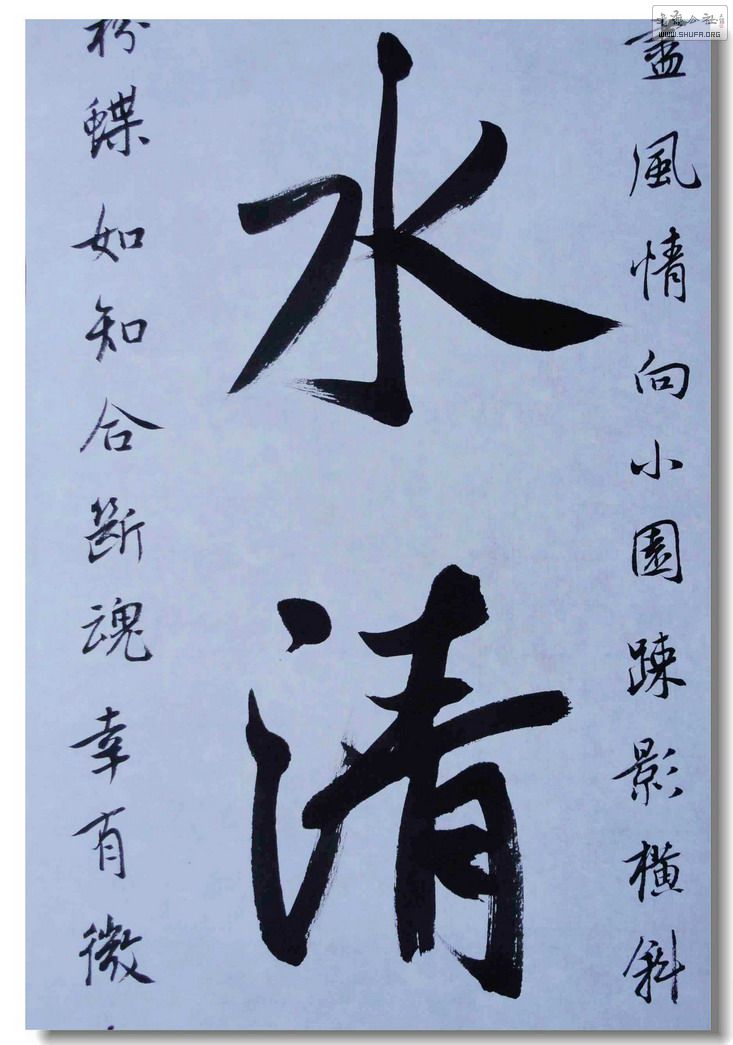 盡風情向小園踈影橫斜
水清
粉蝶如知合斷魂幸有微
WWW.SHUFA.ORG